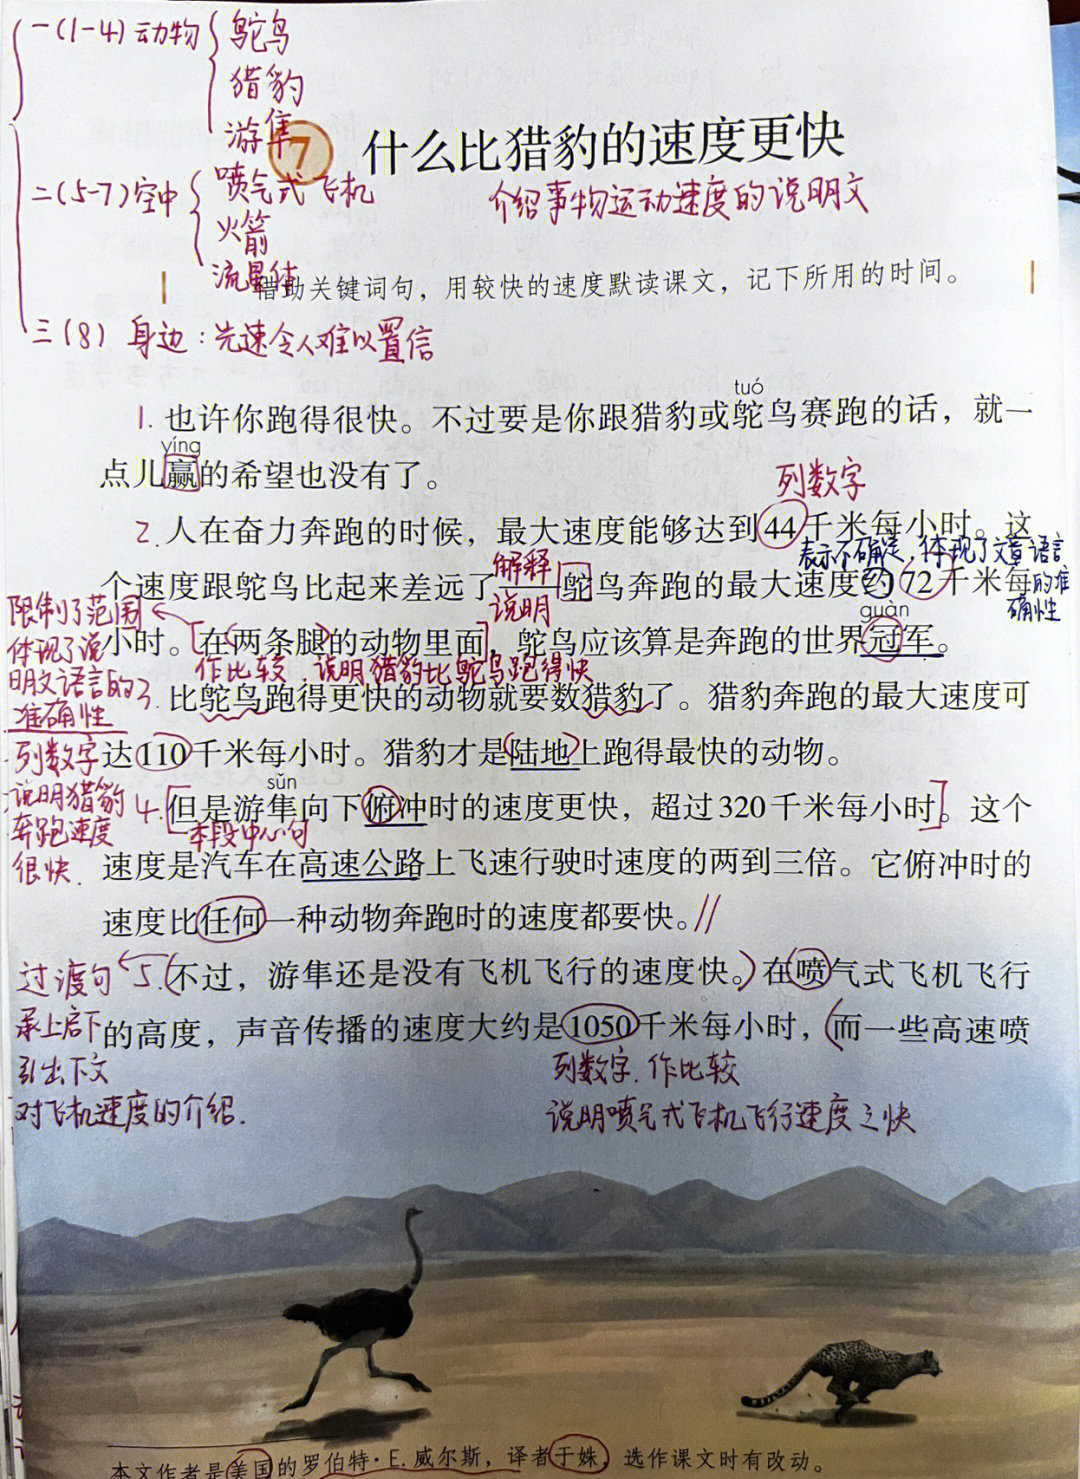 一(1-4)动物
鸵鸟
猎豹
游隼
7 什么比猎豹的速度更快
二(5-7)空中
喷气式飞机
火箭
流星体
介绍事物运动速度的说明文
借助关键词句，用较快的速度默读课文，记下所用的时间。
三(8) 身边：光速令人难以置信
tuó
1. 也许你跑得很快。不过要是你跟猎豹或鸵鸟赛跑的话，就一
yíng
点儿赢的希望也没有了。
列数字
2. 人在奋力奔跑的时候，最大速度能够达到44千米每小时。这
表示不确定，体现了文章语言的准确性
解释说明
个速度跟鸵鸟比起来差远了——鸵鸟奔跑的最大速度约72千米每
guàn
限制了范围
体现了说
明文语言的
准确性
小时。在两条腿的动物里面，鸵鸟应该算是奔跑的世界冠军。
作比较 说明猎豹比鸵鸟跑得快
3. 比鸵鸟跑得更快的动物就要数猎豹了。猎豹奔跑的最大速度可
达110千米每小时。猎豹才是陆地上跑得最快的动物。
列数字
说明猎豹
奔跑速度
很快.
sǔn
4. 但是游隼向下俯冲时的速度更快，超过320千米每小时。这个
本段中心句
速度是汽车在高速公路上飞速行驶时速度的两到三倍。它俯冲时的
速度比任何一种动物奔跑时的速度都要快。//
过渡句
5. 不过，游隼还是没有飞机飞行的速度快。在喷气式飞机飞行
的高度，声音传播的速度大约是1050千米每小时，而一些高速喷
承上启下
引出下文
对飞机速度的介绍.
列数字.作比较
说明喷气式飞机飞行速度之快
本文作者是美国的罗伯特·E.威尔斯，译者于姝，选作课文时有改动。